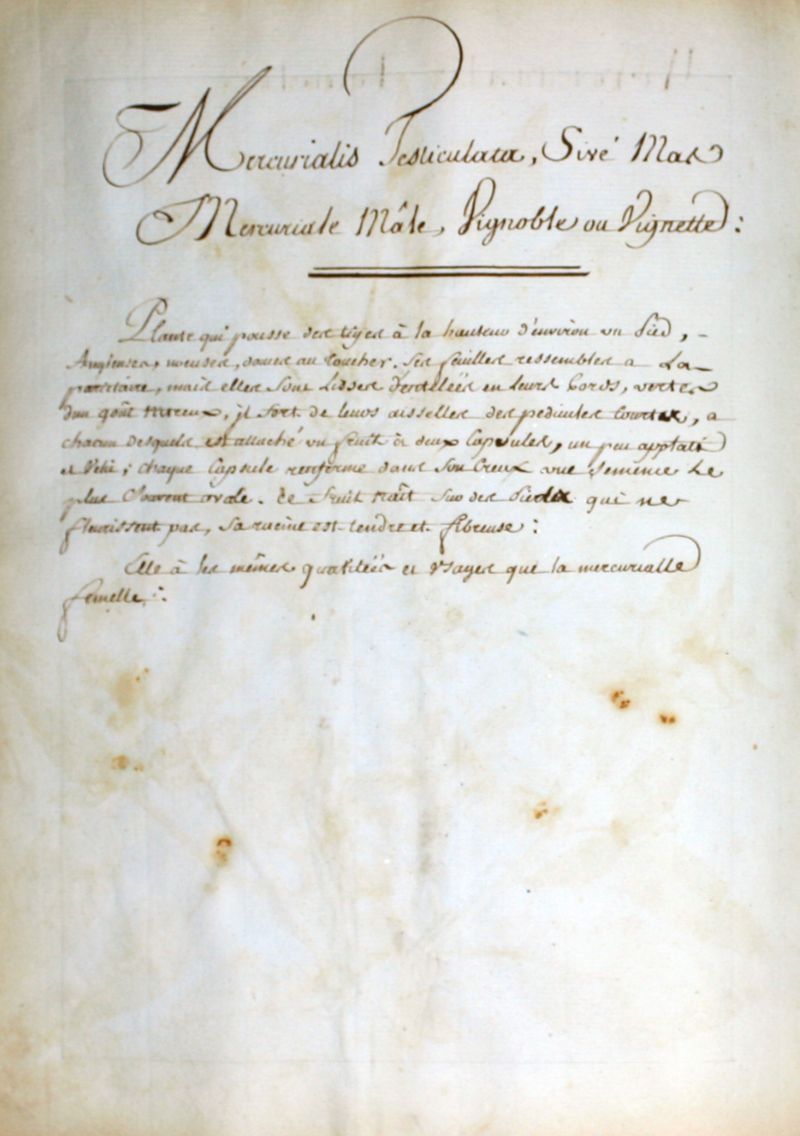 Mercurialis Testiculata, Sivé Mas
Mercuriale Mâle, Vignoble ou Vignette :
Plante qui pousse des tiges à la hauteur d'environ un Pied, -
Anguleuses, noueuses, douces au toucher, ses feuilles ressembles a La
parietaire, mais elles sont Lisses Dentelées en leurs bords, vertes
d'un goût nitreux, jl sort de leurs aisselles des pedicules Courtes, a
chacun desquels est attaché un fruit à deux Capsules, un peu applati
et Velu ; chaque Capsule renferme dans son Creux une Semence Le
plus Souvent ovale. Ce fruit naît sur des Pieds qui ne
fleurissent pas, sa racine est tendre et fibreuse :
Elle à les mêmes qualitées et Usages que la mercurialle
femelle :